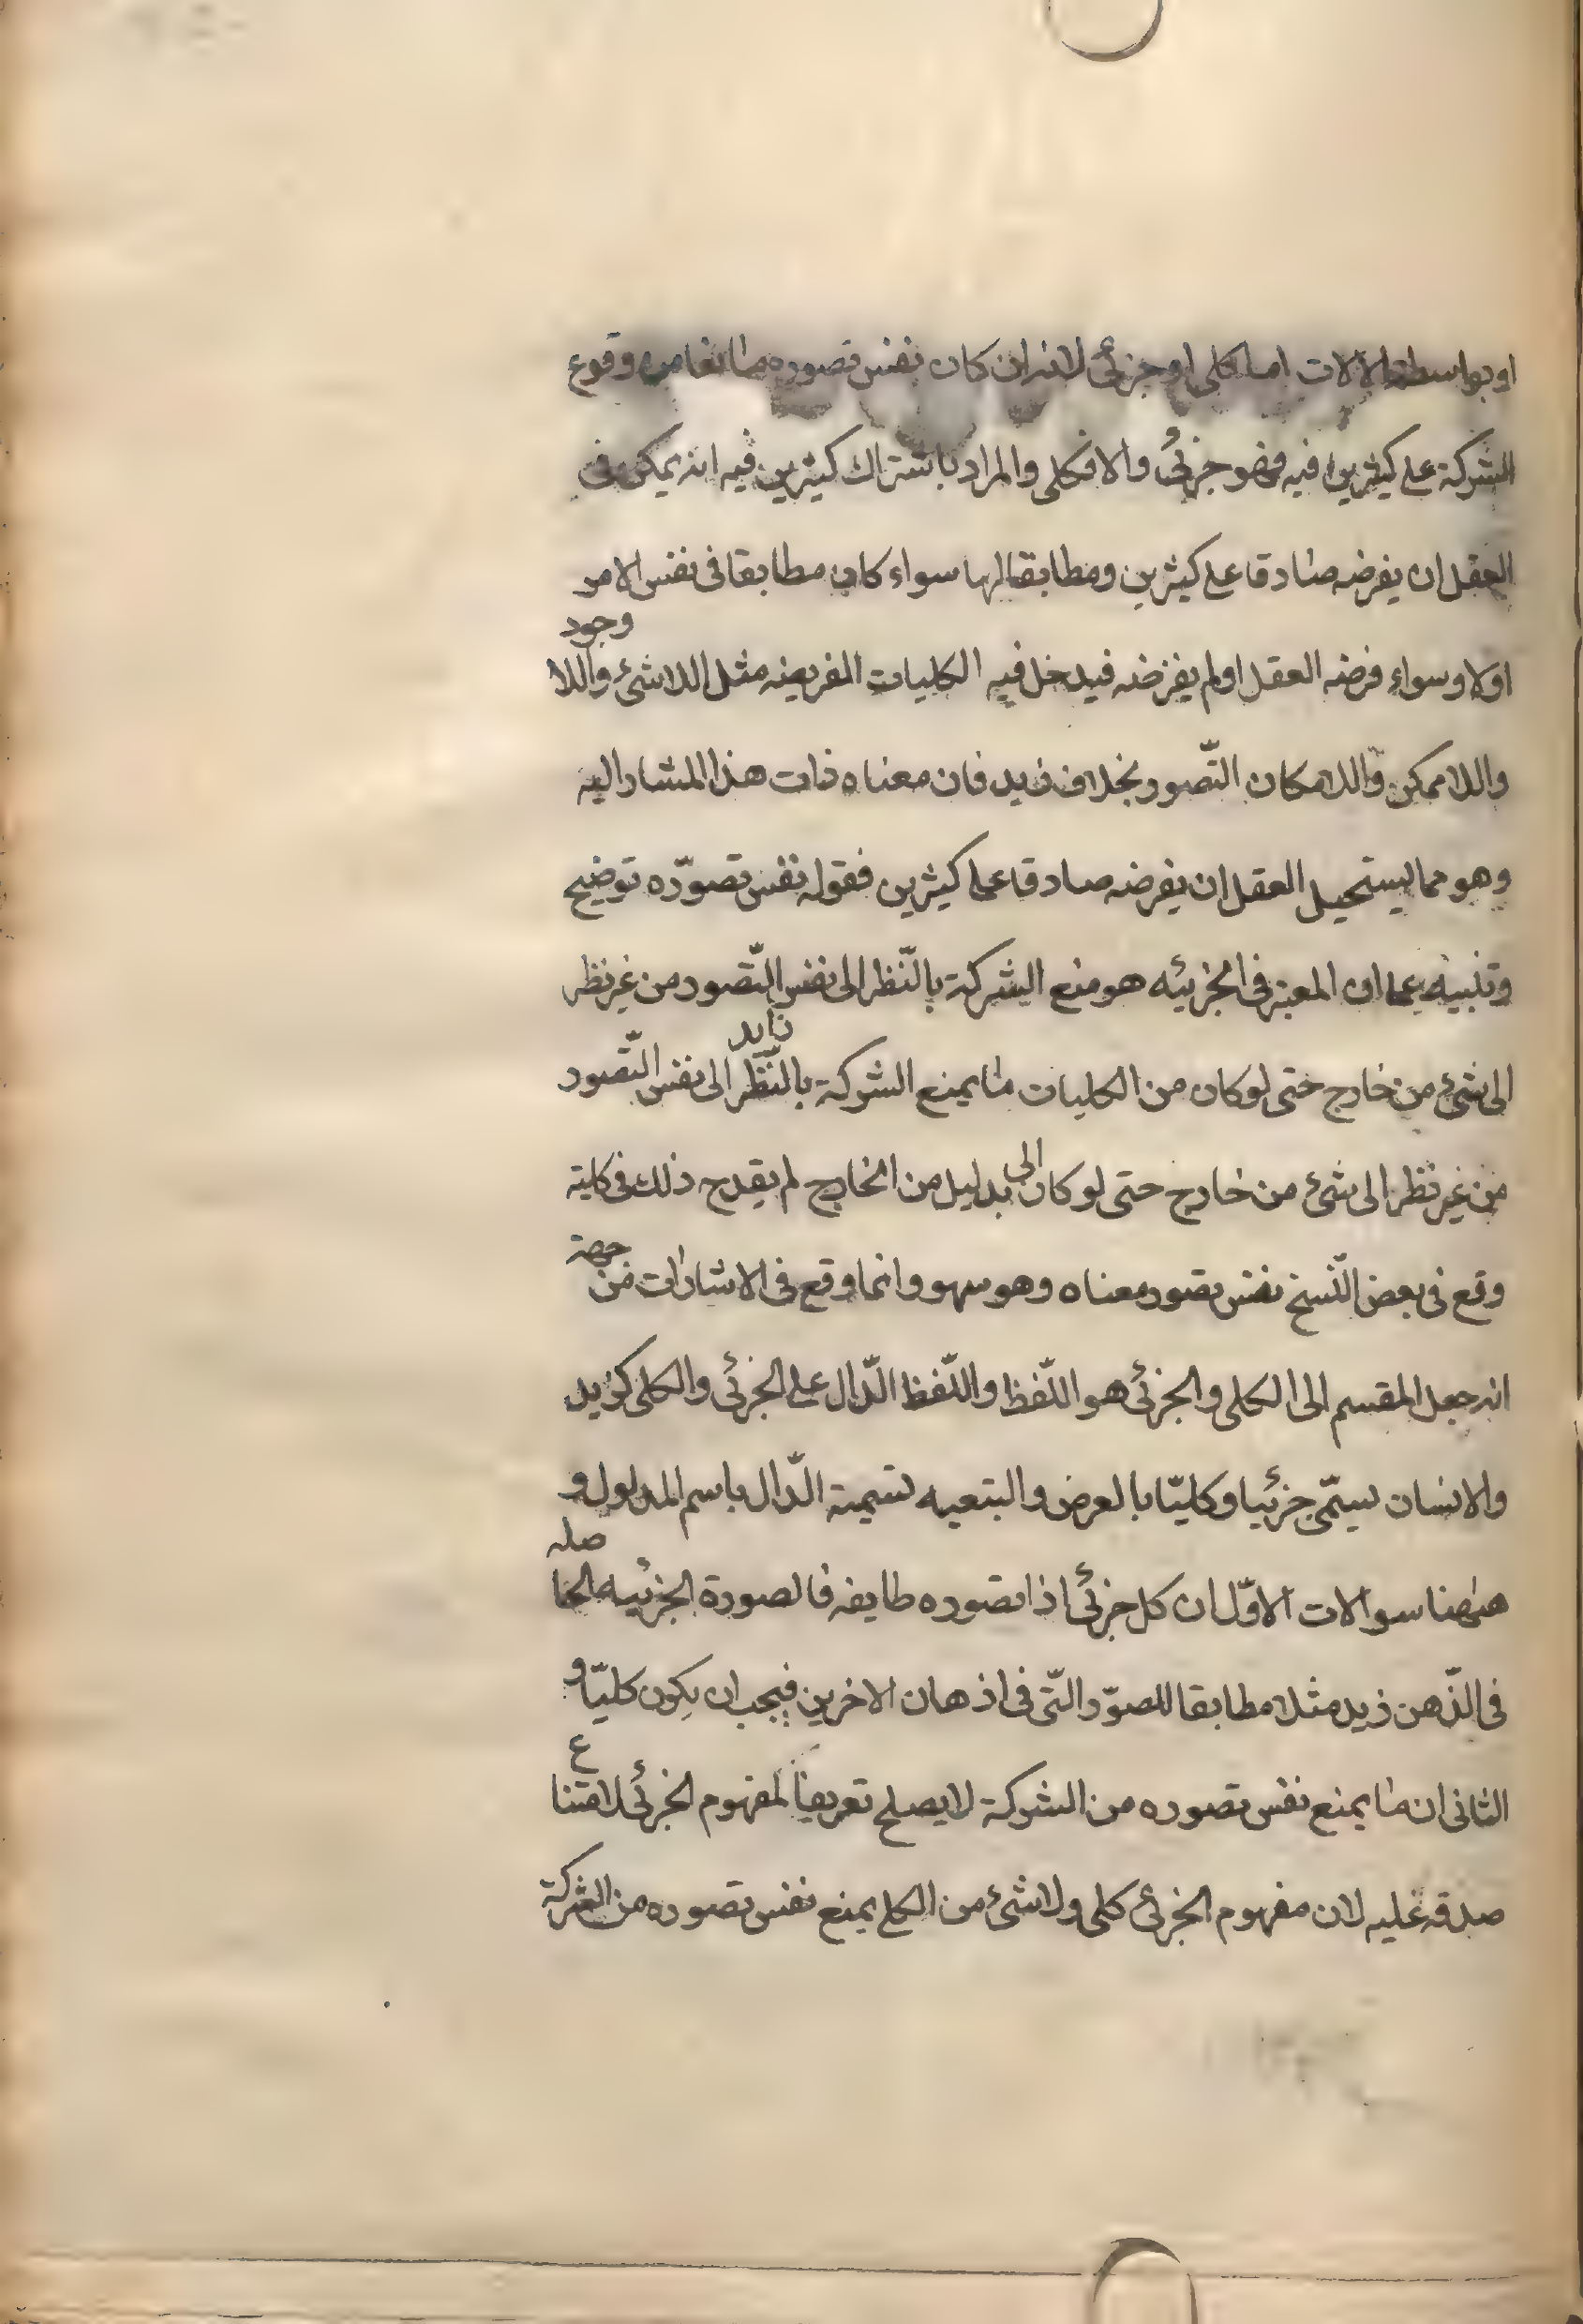 او بواسطة الالات اما كلى او جزئى لانه ان كان نفس تصوره مانعا من وقوع
الشركة على كثيرين فيه فهو جزئى والا فكلى والمراد باشتراك كثيرين فيه انه يمكن فى
العقل ان يفرضه صادقا على كثيرين ومطابقا لها سواء كان مطابقا فى نفس الامر
اولا وسواء فرضه العقل او لم يفرضه فيدخل فيه الكليات الفرضيه مثل اللاشئ واللا وجود
واللاممكن واللامكان التّصور بخلاف زيد فان معناه ذات هذا المشار اليه
وهو مما يستحيل العقل ان يفرضه صادقا على كثيرين فقوله نفس تصوّره توضيح
وتنبيه على ان المعتبر فى الجزئيه هو منع الشركة بالنّظر الى نفس التّصور من غير نظر
الى شئ من خارج حتى لو كان من الكليات ما يمنع الشركة بالنّظر الى نفس التّصور
زايد
من غير نظر الى شئ من خارج حتى لو كان الى بدليل من الخارج لم يقدح ذلك فى كليته
وقع فى بعض النّسخ نفس تصور معناه وهو سهو وانما وقع فى الاشارات من جهة
انه جعل المقسم الى الكلى والجزئى هو اللّفظ واللّفظ الدّال على الجزئى والكلى كزيد
والانسان يسمّى جزئيا وكليّا بالعرض والتبعيه تسمية الدّال باسم المدلول و
هٰهنا سوالات الاوّل ان كل جزئى اذا تصوره طايفه فالصورة الجزئيه الحاصله
فى الذّهن زيد مثلا مطابقا للصوّر التّى فى اذهان الاخرين فيجب ان يكون كليّا و
الثانى ان ما يمنع نفس تصوره من الشركة لا يصلح تعريفا لمفهوم الجزئى لامتناع
صدقه عليه لان مفهوم الجزئى كلى ولا شئ من الكلى يمنع نفس تصوره من الشركة